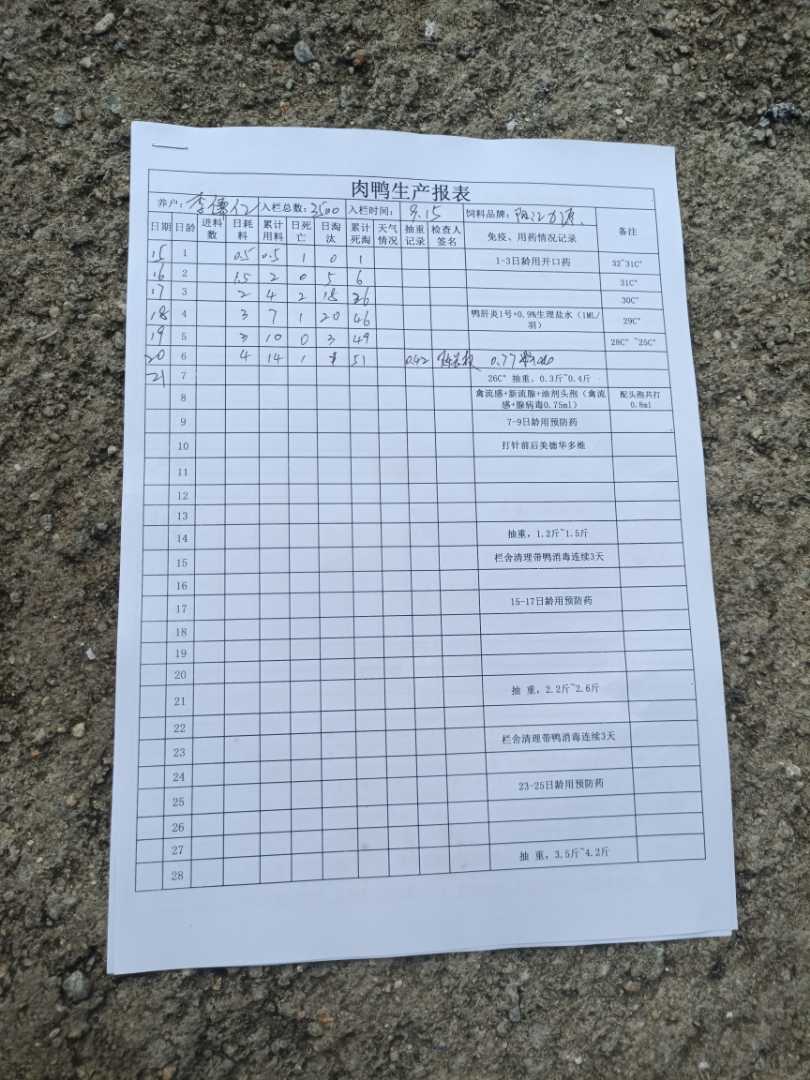 肉鸭生产报表
养户: 李 仁 入栏总数: 3500 入栏时间: 9.15 饲料品牌: 阳江
日期 日龄 进料数 日耗料 累计用料 日死亡 日淘汰 累计死淘 天气情况 抽重记录 检查人签名 免疫、用药情况记录 备注
15 1 0.5 0.5 1 0 1 1-3日龄用开口药 32~31C°
16 2 1.5 2 0 5 6 31C°
17 3 2 4 2 18 26 30C°
18 4 3 7 1 20 46 鸭肝炎1号+0.9%生理盐水（1ML/羽） 29C°
19 5 3 10 0 3 49 28C° ~25C°
20 6 4 14 1 51 0.42 0.77
21 7 26C° 抽重，0.3斤~0.4斤
8 禽流感+新流腺+油剂头孢（禽流感+腺病毒0.75ml） 配头孢共打0.8ml
9 7-9日龄用预防药
10 打针前后美德华多维
11
12
13
14 抽重，1.2斤~1.5斤
15 栏舍清理带鸭消毒连续3天
16
17 15-17日龄用预防药
18
19
20
21 抽 重，2.2斤~2.6斤
22
23 栏舍清理带鸭消毒连续3天
24
25 23-25日龄用预防药
26
27
28 抽 重，3.5斤~4.2斤